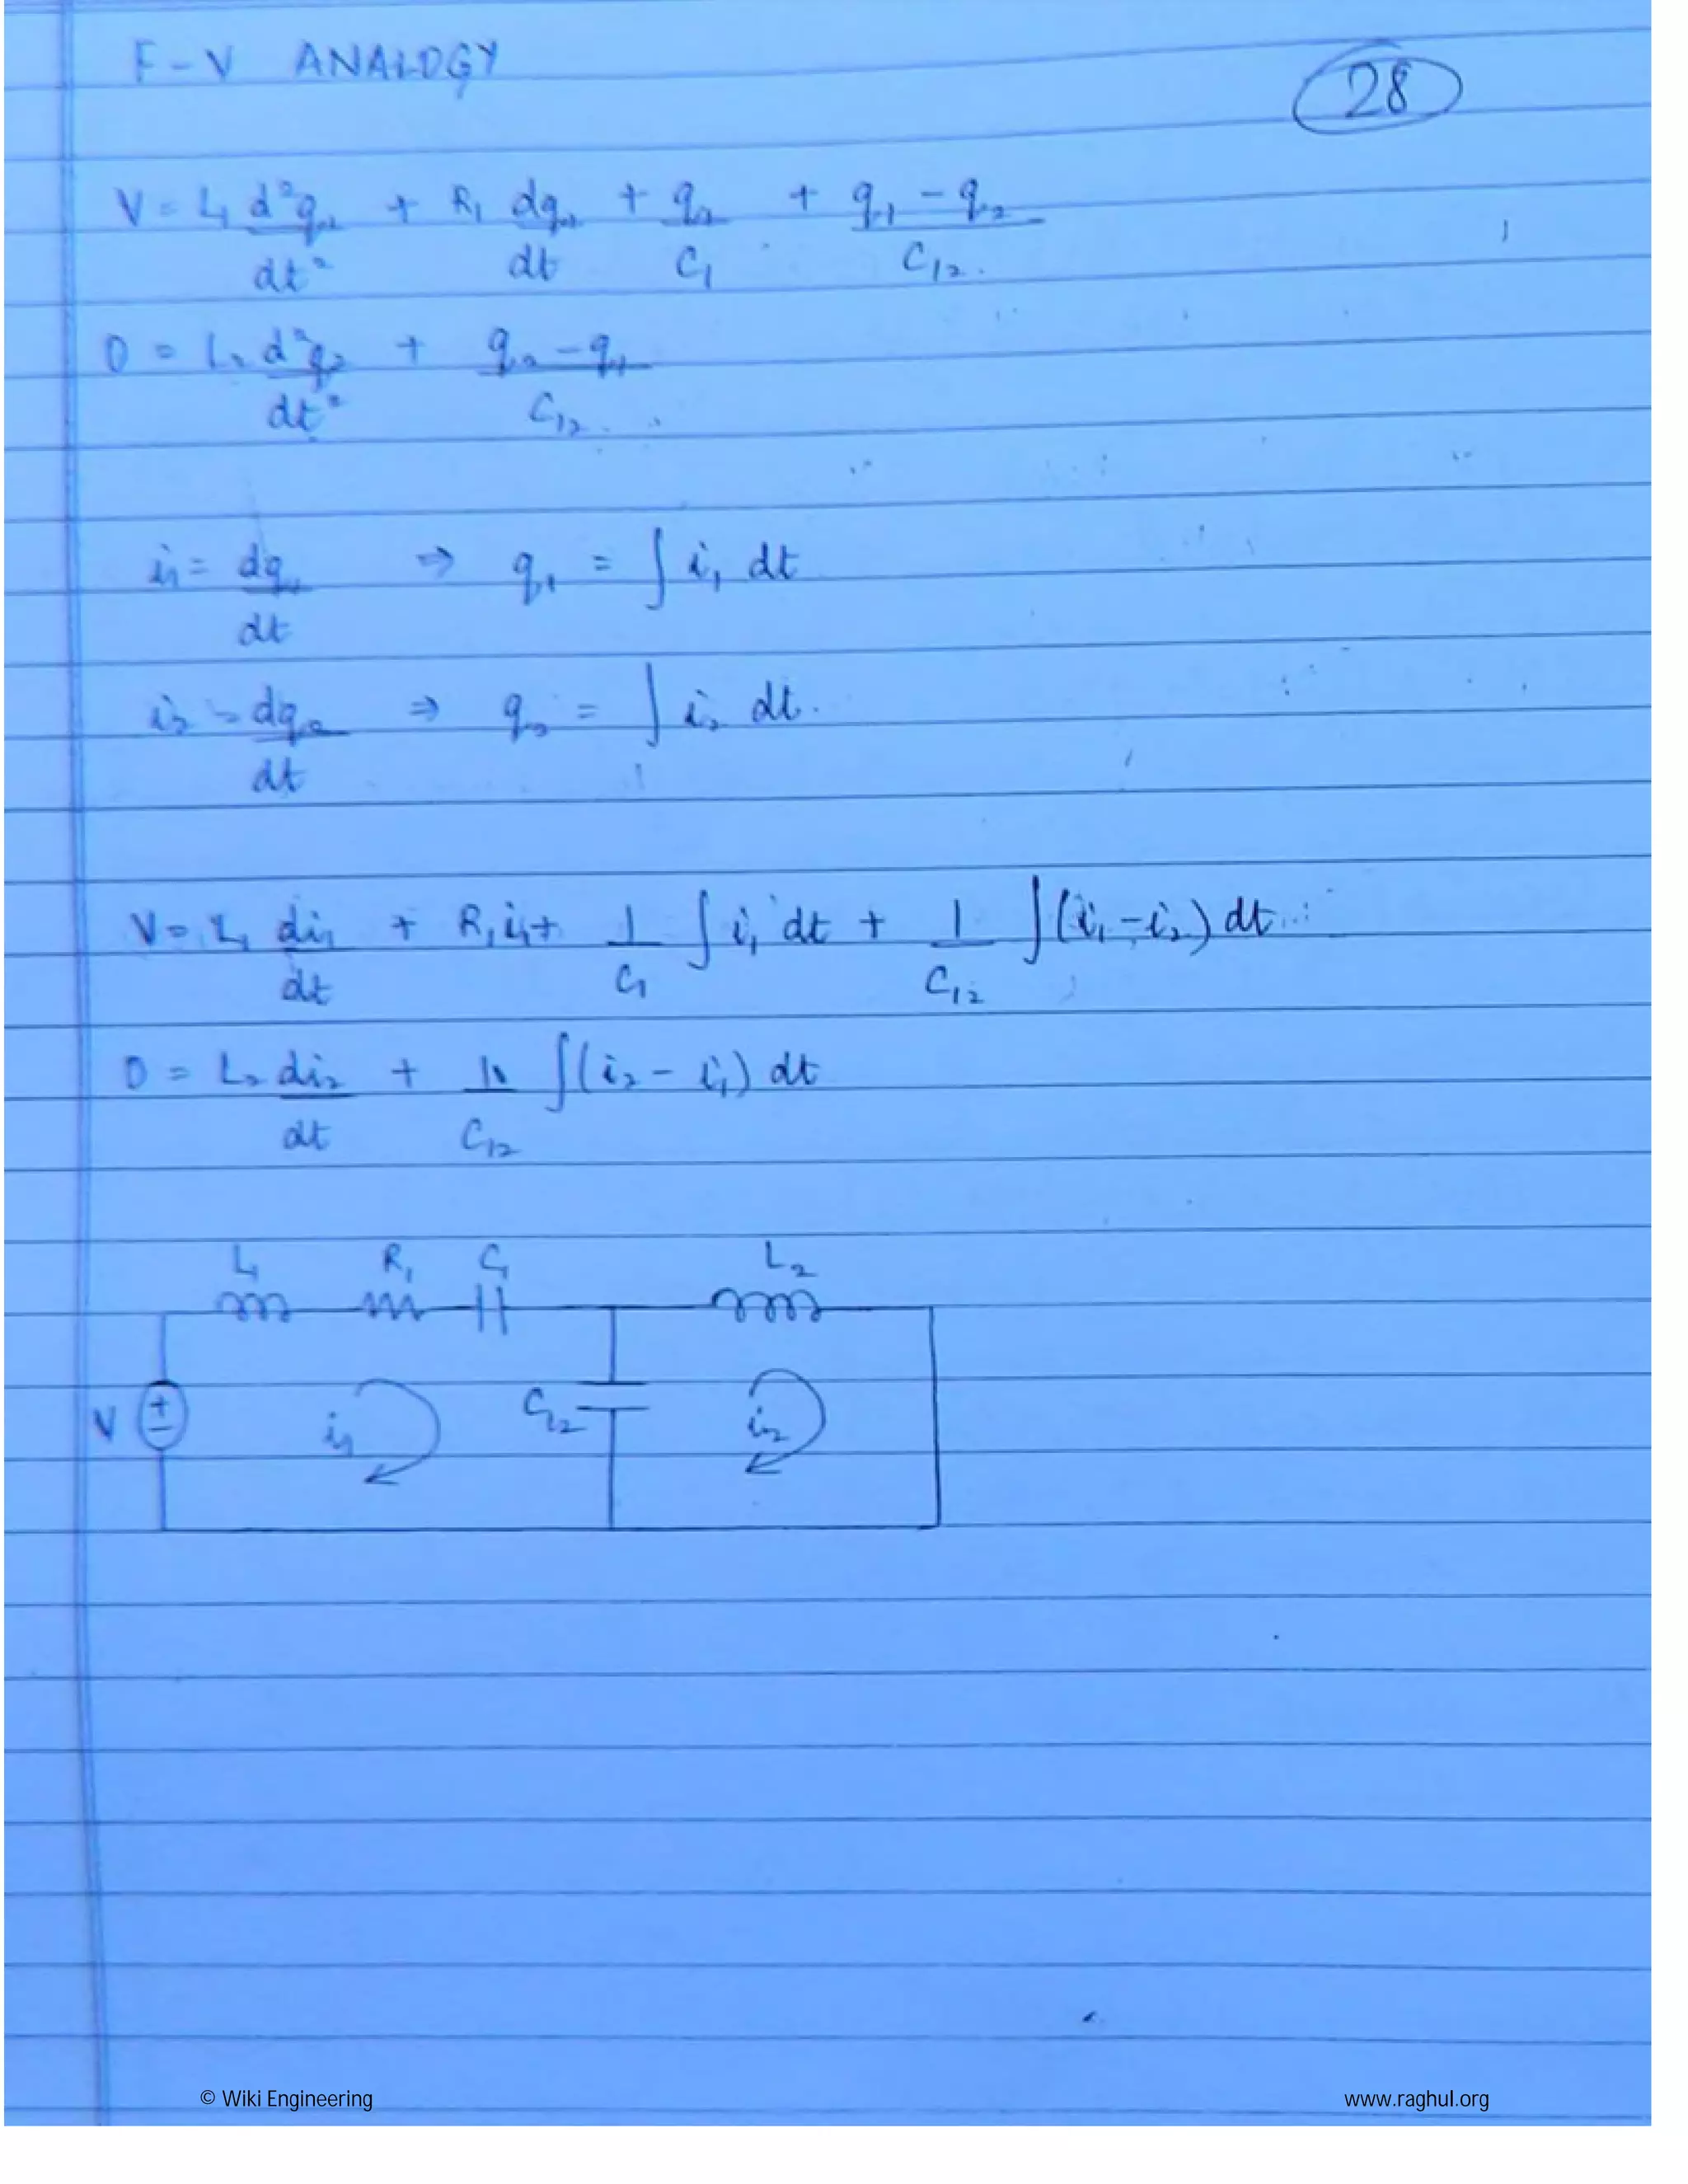 F-V ANALOGY
28
V = L₁ d²q₁/dt² + R₁ dq₁/dt + q₁/C₁ + q₁ - q₂/C₁₂.
0 = L₂ d²q₂/dt² + q₂ - q₁/C₁₂.
i₁ = dq₁/dt ⇒ q₁ = ∫ i₁ dt
i₂ = dq₂/dt ⇒ q₂ = ∫ i₂ dt.
V = L₁ di₁/dt + R₁i₁ + 1/C₁ ∫ i₁ dt + 1/C₁₂ ∫(i₁ - i₂) dt
0 = L₂ di₂/dt + 1/C₁₂ ∫(i₂ - i₁) dt
L₁ R₁ C₁ L₂
V + - i₁ C₁₂ i₂
© Wiki Engineering www.raghul.org